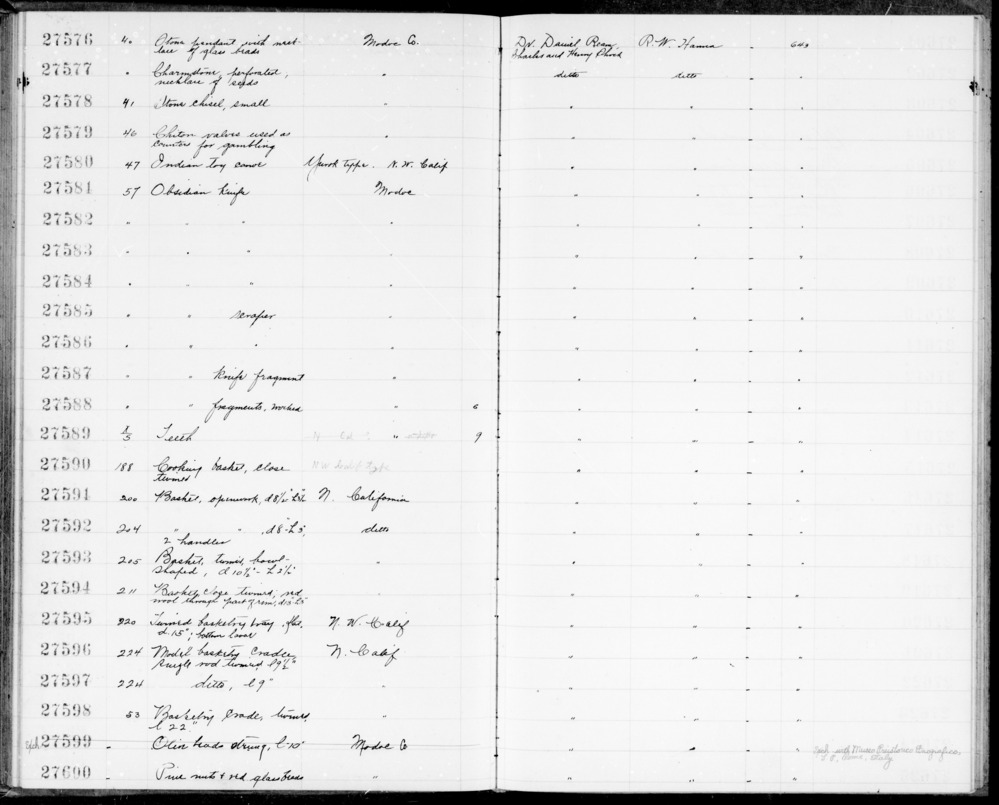 27576 40 Stone pendant with neck- Modoc Co. Dr. Daniel Ream, R.W. Hanna - 649
lace of glass beads Charles and Henry
27577 " Charmstone, perforated, " ditto ditto - "
necklace of seeds
27578 41 Stone chisel, small " " " - "
27579 46 Chiton valves used as " " " - "
counters for gambling
27580 47 Indian toy canoe Yurok type. N.W. Calif " " - "
27581 57 Obsidian knife Modoc " " - "
27582 " " " " " " - "
27583 " " " " " " - "
27584 " " " " " " - "
27585 " " scraper " " " - "
27586 " " " " " " - "
27587 " " knife fragment " " " - "
27588 " " fragments, worked " 6 " " - "
27589 1/3 Teeth " 9 " " - "
27590 188 Cooking basket, close N.W. Calif type " " - "
twined
27591 200 Basket, openwork, d 8½" N. California " " - "
27592 204 " " , d 8"- L 5", ditto " " - "
2 handles
27593 205 Basket, twined, bowl- " " " - "
shaped, d 10½"- L 3½"
27594 211 Basket close twined, red " " " - "
wool through part of rim,
27595 220 Twined basketry tray, N.W. Calif " " - "
d. 15";
27596 224 Model basketry cradle, N. Calif " " - "
single rod twined, l 9½"
27597 224 ditto, l 9" " " " - "
27598 53 Basketry cradle, twined, " " " - "
l 22"
Exch 27599 - beads strung, l-10" Modoc Co " " - " Exch. with Museo
Rome, Italy.
27600 - Pine nuts & red glass beads " " " - "